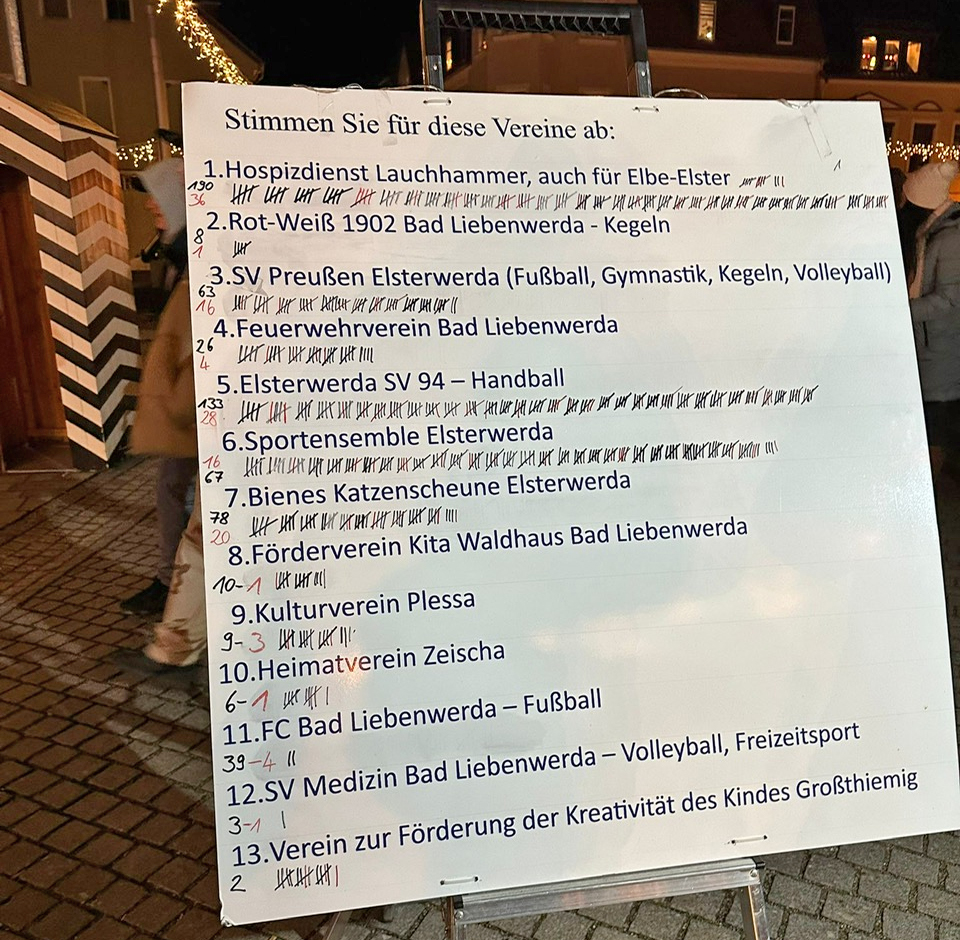 Stimmen Sie für diese Vereine ab:
1.Hospizdienst Lauchhammer, auch für Elbe-Elster
190
36
2.Rot-Weiß 1902 Bad Liebenwerda - Kegeln
8
1
3.SV Preußen Elsterwerda (Fußball, Gymnastik, Kegeln, Volleyball)
63
16
4.Feuerwehrverein Bad Liebenwerda
26
4
5.Elsterwerda SV 94 – Handball
133
28
6.Sportensemble Elsterwerda
16
67
7.Bienes Katzenscheune Elsterwerda
78
20
8.Förderverein Kita Waldhaus Bad Liebenwerda
10-1
9.Kulturverein Plessa
9-3
10.Heimatverein Zeischa
6-1
11.FC Bad Liebenwerda – Fußball
39-4
12.SV Medizin Bad Liebenwerda – Volleyball, Freizeitsport
3-1
13.Verein zur Förderung der Kreativität des Kindes Großthiemig
2